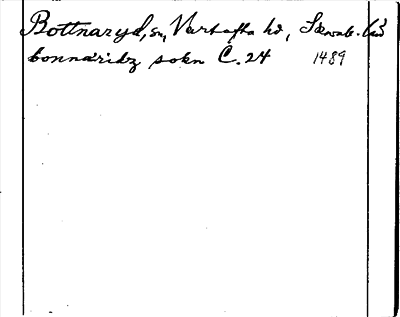 Bottnaryd, sn, Vartofta hd, Skarab. län
bonnaridz sokn C. 24 1489